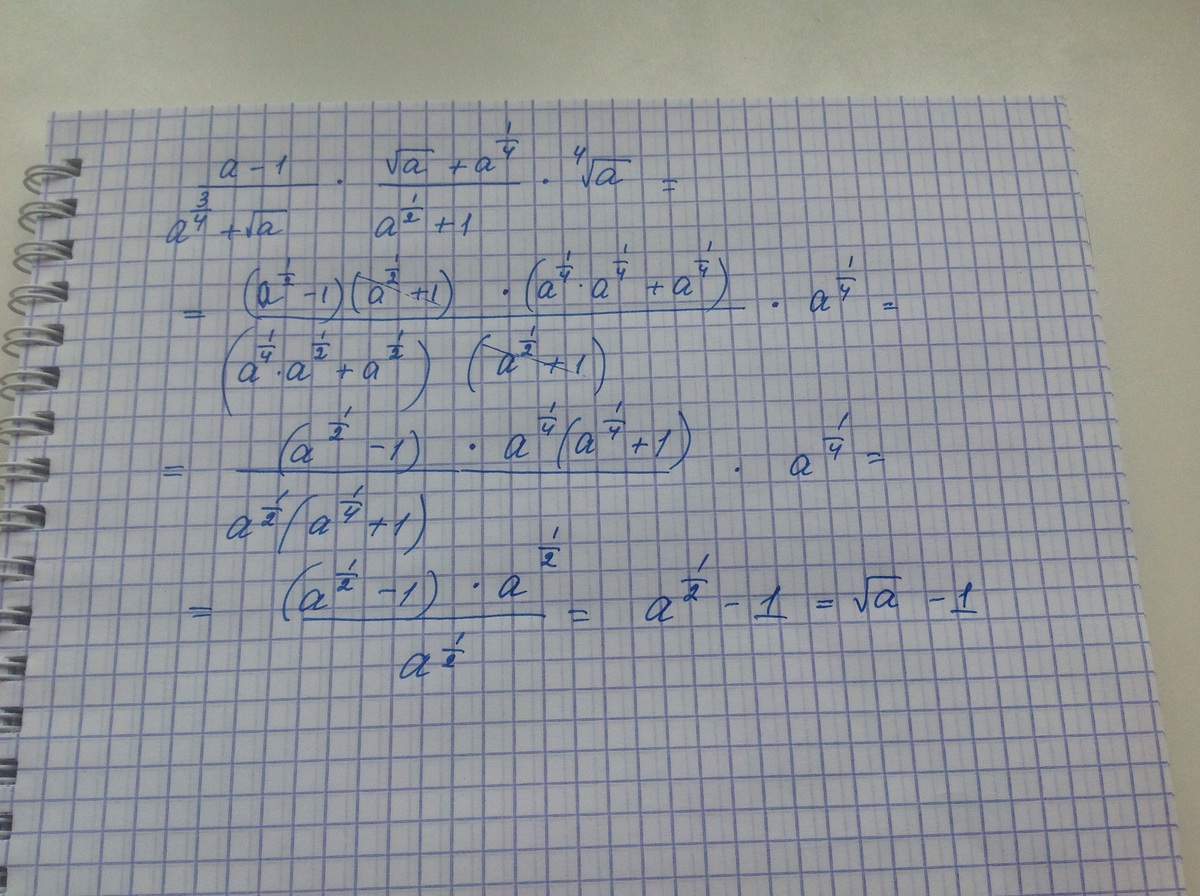 (a − 1)/(a^(3/4) + √a) · (√a + a^(1/4))/(a^(1/2) + 1) · ⁴√a =
= ((a^(1/2) − 1)(a^(1/2) + 1) · (a^(1/4) · a^(1/4) + a^(1/4)))/((a^(1/4) · a^(1/2) + a^(1/2)) (a^(1/2) + 1)) · a^(1/4) =
= ((a^(1/2) − 1) · a^(1/4)(a^(1/4) + 1))/(a^(1/2)(a^(1/4) + 1)) · a^(1/4) =
= ((a^(1/2) − 1) · a^(1/2))/(a^(1/2)) = a^(1/2) − 1 = √a − 1